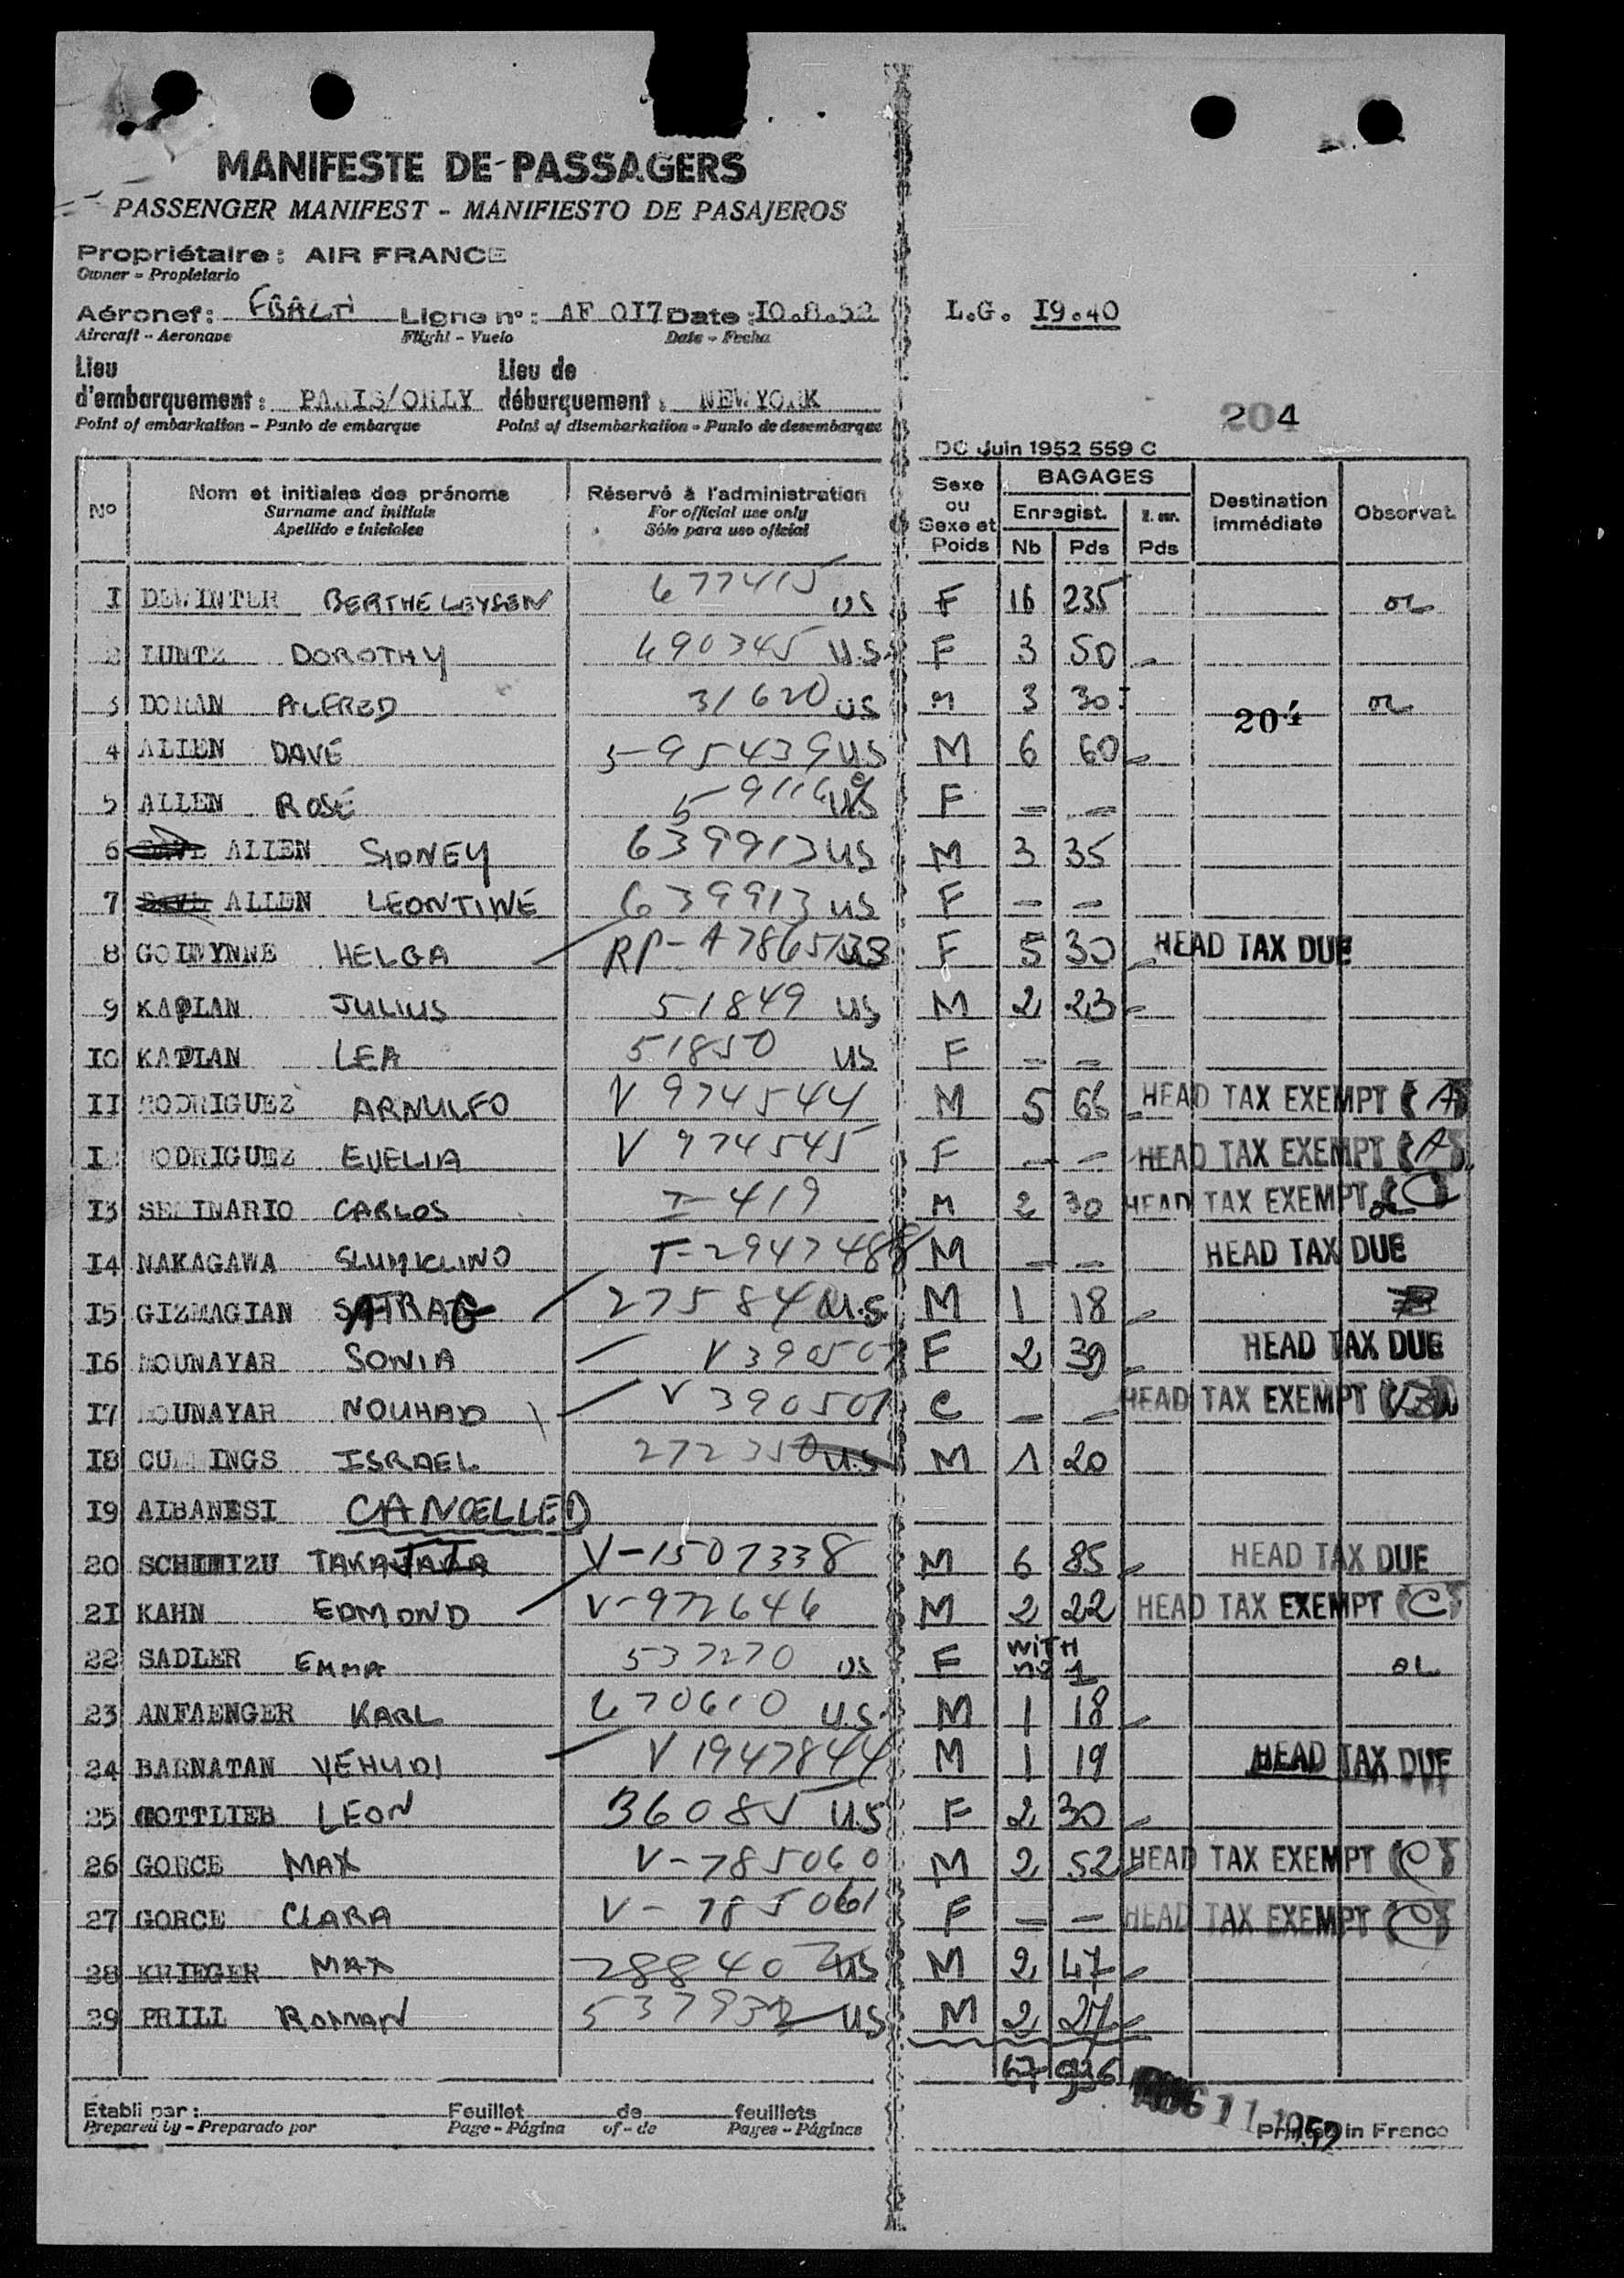 MANIFESTE DE PASSAGERS
PASSENGER MANIFEST - MANIFIESTO DE PASAJEROS
Propriétaire : AIR FRANCE
Owner - Propietario
Aéronef : Ligne n° : AF 017 Date : 10.8.52 L.G. 19.40
Aircraft - Aeronave Flight - Vuelo Date - Fecha
Lieu Lieu de
d'embarquement : PARIS/ORLY débarquement : NEW YORK
Point of embarkation - Punto de embarque Point of disembarkation - Punto de desembarque
204
DC Juin 1952 559 C
N° Nom et initiales des prénoms Réservé à l'administration Sexe ou Sexe et Poids BAGAGES Enregist. Nb Pds Pds Destination immédiate Observat.
Surname and initials For official use only
Apellido e iniciales Sólo para uso oficial
I DEWINTER BERTHE LEYSEN 677415 US F 16 235 OL
2 LUNTZ DOROTHY 690345 U.S. F 3 50
3 DORAN ALFRED 31620 US M 3 30 OL
204
4 ALLEN DAVE 595439 US M 6 60
5 ALLEN ROSE US F - -
6 ALLEN SIDNEY 639913 US M 3 35
7 ALLEN LEONTINE 639913 US F - -
8 GOLDWYNNE HELGA RP-A7865133 F 5 30 HEAD TAX DUE
9 KAPLAN JULIUS 51849 US M 2 23
IO KAPLAN LEA 51850 US F - -
II RODRIGUEZ ARNULFO V 974544 M 5 66 HEAD TAX EXEMPT (A)
I RODRIGUEZ EVELIA V 974545 F - - HEAD TAX EXEMPT (A)
I3 SEMINARIO CARLOS I-419 M 2 30 HEAD TAX EXEMPT (C) OL
I4 NAKAGAWA T-2947488 M - - HEAD TAX DUE
I5 GIZMAGIAN SATRAG 27584 U.S. M 1 18
I6 MOUNAYAR SONIA V 390507 F 2 39 HEAD TAX DUE
I7 MOUNAYAR NOUHAD V 390507 C - - HEAD TAX EXEMPT
I8 CUMMINGS ISRAEL 272350 U.S. M 1 20
I9 ALBANESI CANCELLED
20 SCHIMIZU V-1507338 M 6 85 HEAD TAX DUE
2I KAHN EDMOND V-972646 M 2 22 HEAD TAX EXEMPT (C)
22 SADLER EMMA 537270 US F WITH N° 1 OL
23 ANFAENGER KARL 670610 U.S. M 1 18
24 BARNATAN YEHUDI V 1947844 M 1 19 HEAD TAX DUE
25 GOTTLIEB LEON 36085 US F 2 30
26 GORCE MAX V-785060 M 2 52 HEAD TAX EXEMPT (C)
27 GORCE CLARA V-785061 F - - HEAD TAX EXEMPT (C)
28 KRIEGER MAX 288407 US M 2 47
29 PRILL ROMAN 537932 US M 2 27
67 936
AUG 11 1952
Etabli par : Feuillet de feuillets
Prepared by - Preparado por Page - Página of - de Pages - Páginas
Printed in France